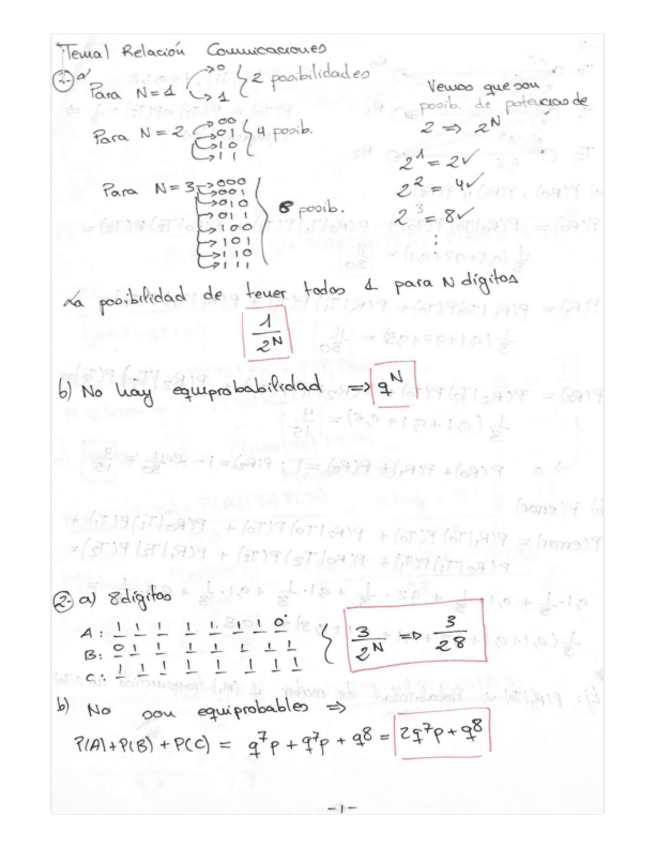 Tema 1 Relación Comunicaciones
1. a) Para N=1 → 0 → 1 } 2 posibilidades
Para N=2 → 00 → 01 → 10 → 11 } 4 posib.
Para N=3 → 000 → 001 → 010 → 011 → 100 → 101 → 110 → 111 } 8 posib.
Vemos que son
posib. de potencias de
2 ⇒ 2^N
2^1 = 2 ✓
2^2 = 4 ✓
2^3 = 8 ✓
⋮
La posibilidad de tener todos 1 para N dígitos
1/2^N
b) No hay equiprobabilidad ⇒ q^N
2. a) 8 dígitos
A: 1 1 1 1 1 1 1 1 0
B: 0 1 1 1 1 1 1 1
C: 1 1 1 1 1 1 1 1 1
} 3/2^N ⇒ 3/2^8
b) No son equiprobables ⇒
P(A)+P(B)+P(C) = q^7p + q^7p + q^8 = 2q^7p + q^8
-1-